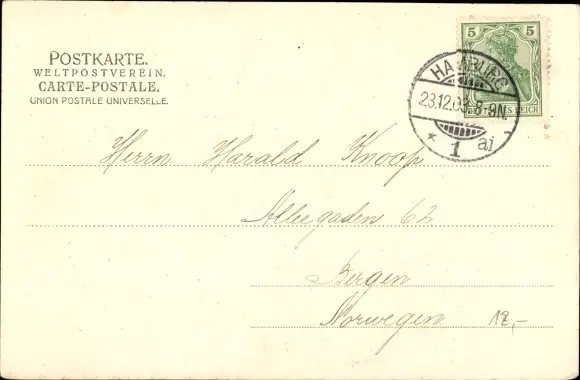 POSTKARTE.
WELTPOSTVEREIN.
CARTE-POSTALE.
UNION POSTALE UNIVERSELLE.
5 5
DEUTSCHES REICH
HAMBURG
23.12.03. 8-9N.
* 1 aj
Herrn Harald Knoop
Alleegaden 62
Bergen
Norwegen
12,-